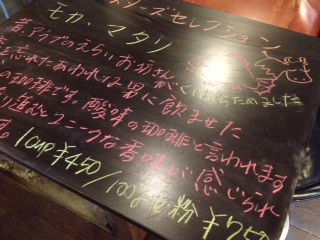 ーズセレクション
モカ・マタリ
昔、アラブのえらいお坊さんが
くいはらためました
忘れたあわれな男に飲ませた
の珈琲です。酸味の珈琲と言われます
り進むとユニークな香味が感じられ
1cup ¥450/100g 粉 ¥750